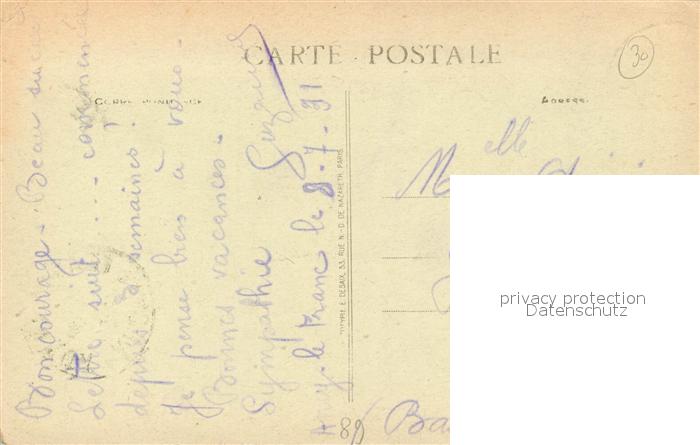 CARTE POSTALE
30
CORRESPONDANCE
Adresse
Bon courage - Beau succès
Lettre suit ... commencée
depuis 2 semaines !
Je pense bien à vous.
Bonnes vacances.
Sympathie Suzanne
le Franc le 8-7-31
E. DESAIX, 33, RUE N.-D. DE NAZARETH, PARIS
Melle
Ba
89
privacy protection
Datenschutz